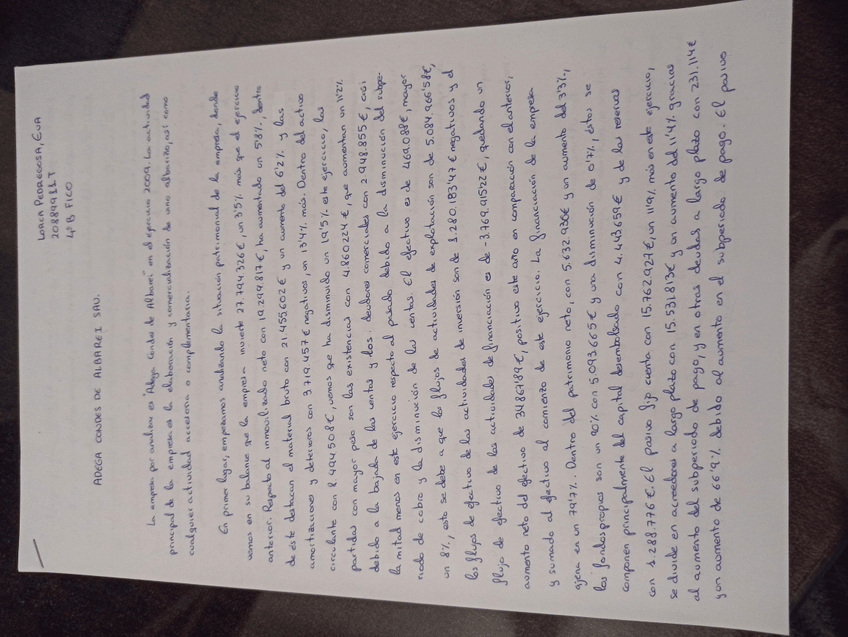 LORCA PEDREGOSA, EVA
20889982T
4ºB FICO
ADEGA CONDES DE ALBAREI SAU.
La empresa por analizar es "Adega Condes de Albarei" en el ejercicio 2009. La actividad
principal de la empresa es la elaboración y comercialización de vino albariño, así como
cualquier actividad accesoria o complementaria.
En primer lugar, empezamos analizando la situación patrimonial de la empresa, donde
vemos en su balance que la empresa invierte 27.794.326€, un 3'5% más que el ejercicio
anterior. Respecto al inmovilizado neto con 19.299.817€, ha aumentado un 5'8%, dentro
de este destacan al material bruto con 21.455.602€ y un aumento del 6'2% y las
amortizaciones y deterioros con 3.719.457€ negativos, un 13'4% más. Dentro del activo
circulante con 8.494.508€, vemos que ha disminuido un 19'5% este ejercicio, las
partidas con mayor peso son las existencias con 4.860.224€, que aumentan un 11'2%
debido a la bajada de las ventas y los deudores comerciales con 2.948.855€, casi
la mitad menos en este ejercicio respecto al pasado debido a la disminución del subpe-
riodo de cobro y la disminución de las ventas. El efectivo es de 469.088€, mayor
un 8%, esto se debe a que los flujos de actividades de explotación son de 5.084.966'58€,
los flujos de efectivo de las actividades de inversión son de 1.280.183'47€ negativos y el
flujo de efectivo de las actividades de financiación es de -3.769.915'22€, quedando un
aumento neto del efectivo de 34.867'89€, positivo este año en comparación con el anterior,
y sumado al efectivo al comienzo de este ejercicio. La financiación de la empresa
ajena en un 79'7%. Dentro del patrimonio neto, con 5.632.936€ y un aumento del 3'3%,
los fondos propios son un 90% con 5.093.665€ y una disminución de 0'7%, éstos se
componen principalmente del capital desembolsado con 4.443.659€ y de las reservas
con 1.288.776€. El pasivo fijo cuenta con 15.762.927€, un 11'9% más en este ejercicio,
se divide en acreedores a largo plazo con 15.531.813€ y un aumento del 11'4% gracias
al aumento del subperiodo de pago, y en otras deudas a largo plazo con 231.114€
y un aumento de 66'9% debido al aumento en el subperiodo de pago. El pasivo